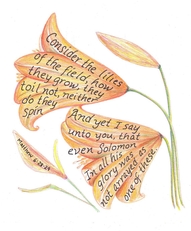 Consider the lilies
of the field, how
they grow, they
toil not, neither
do they
spin
And yet I say
unto you, that
even Solomon
In all his
glory was
not arrayed as
one of these.